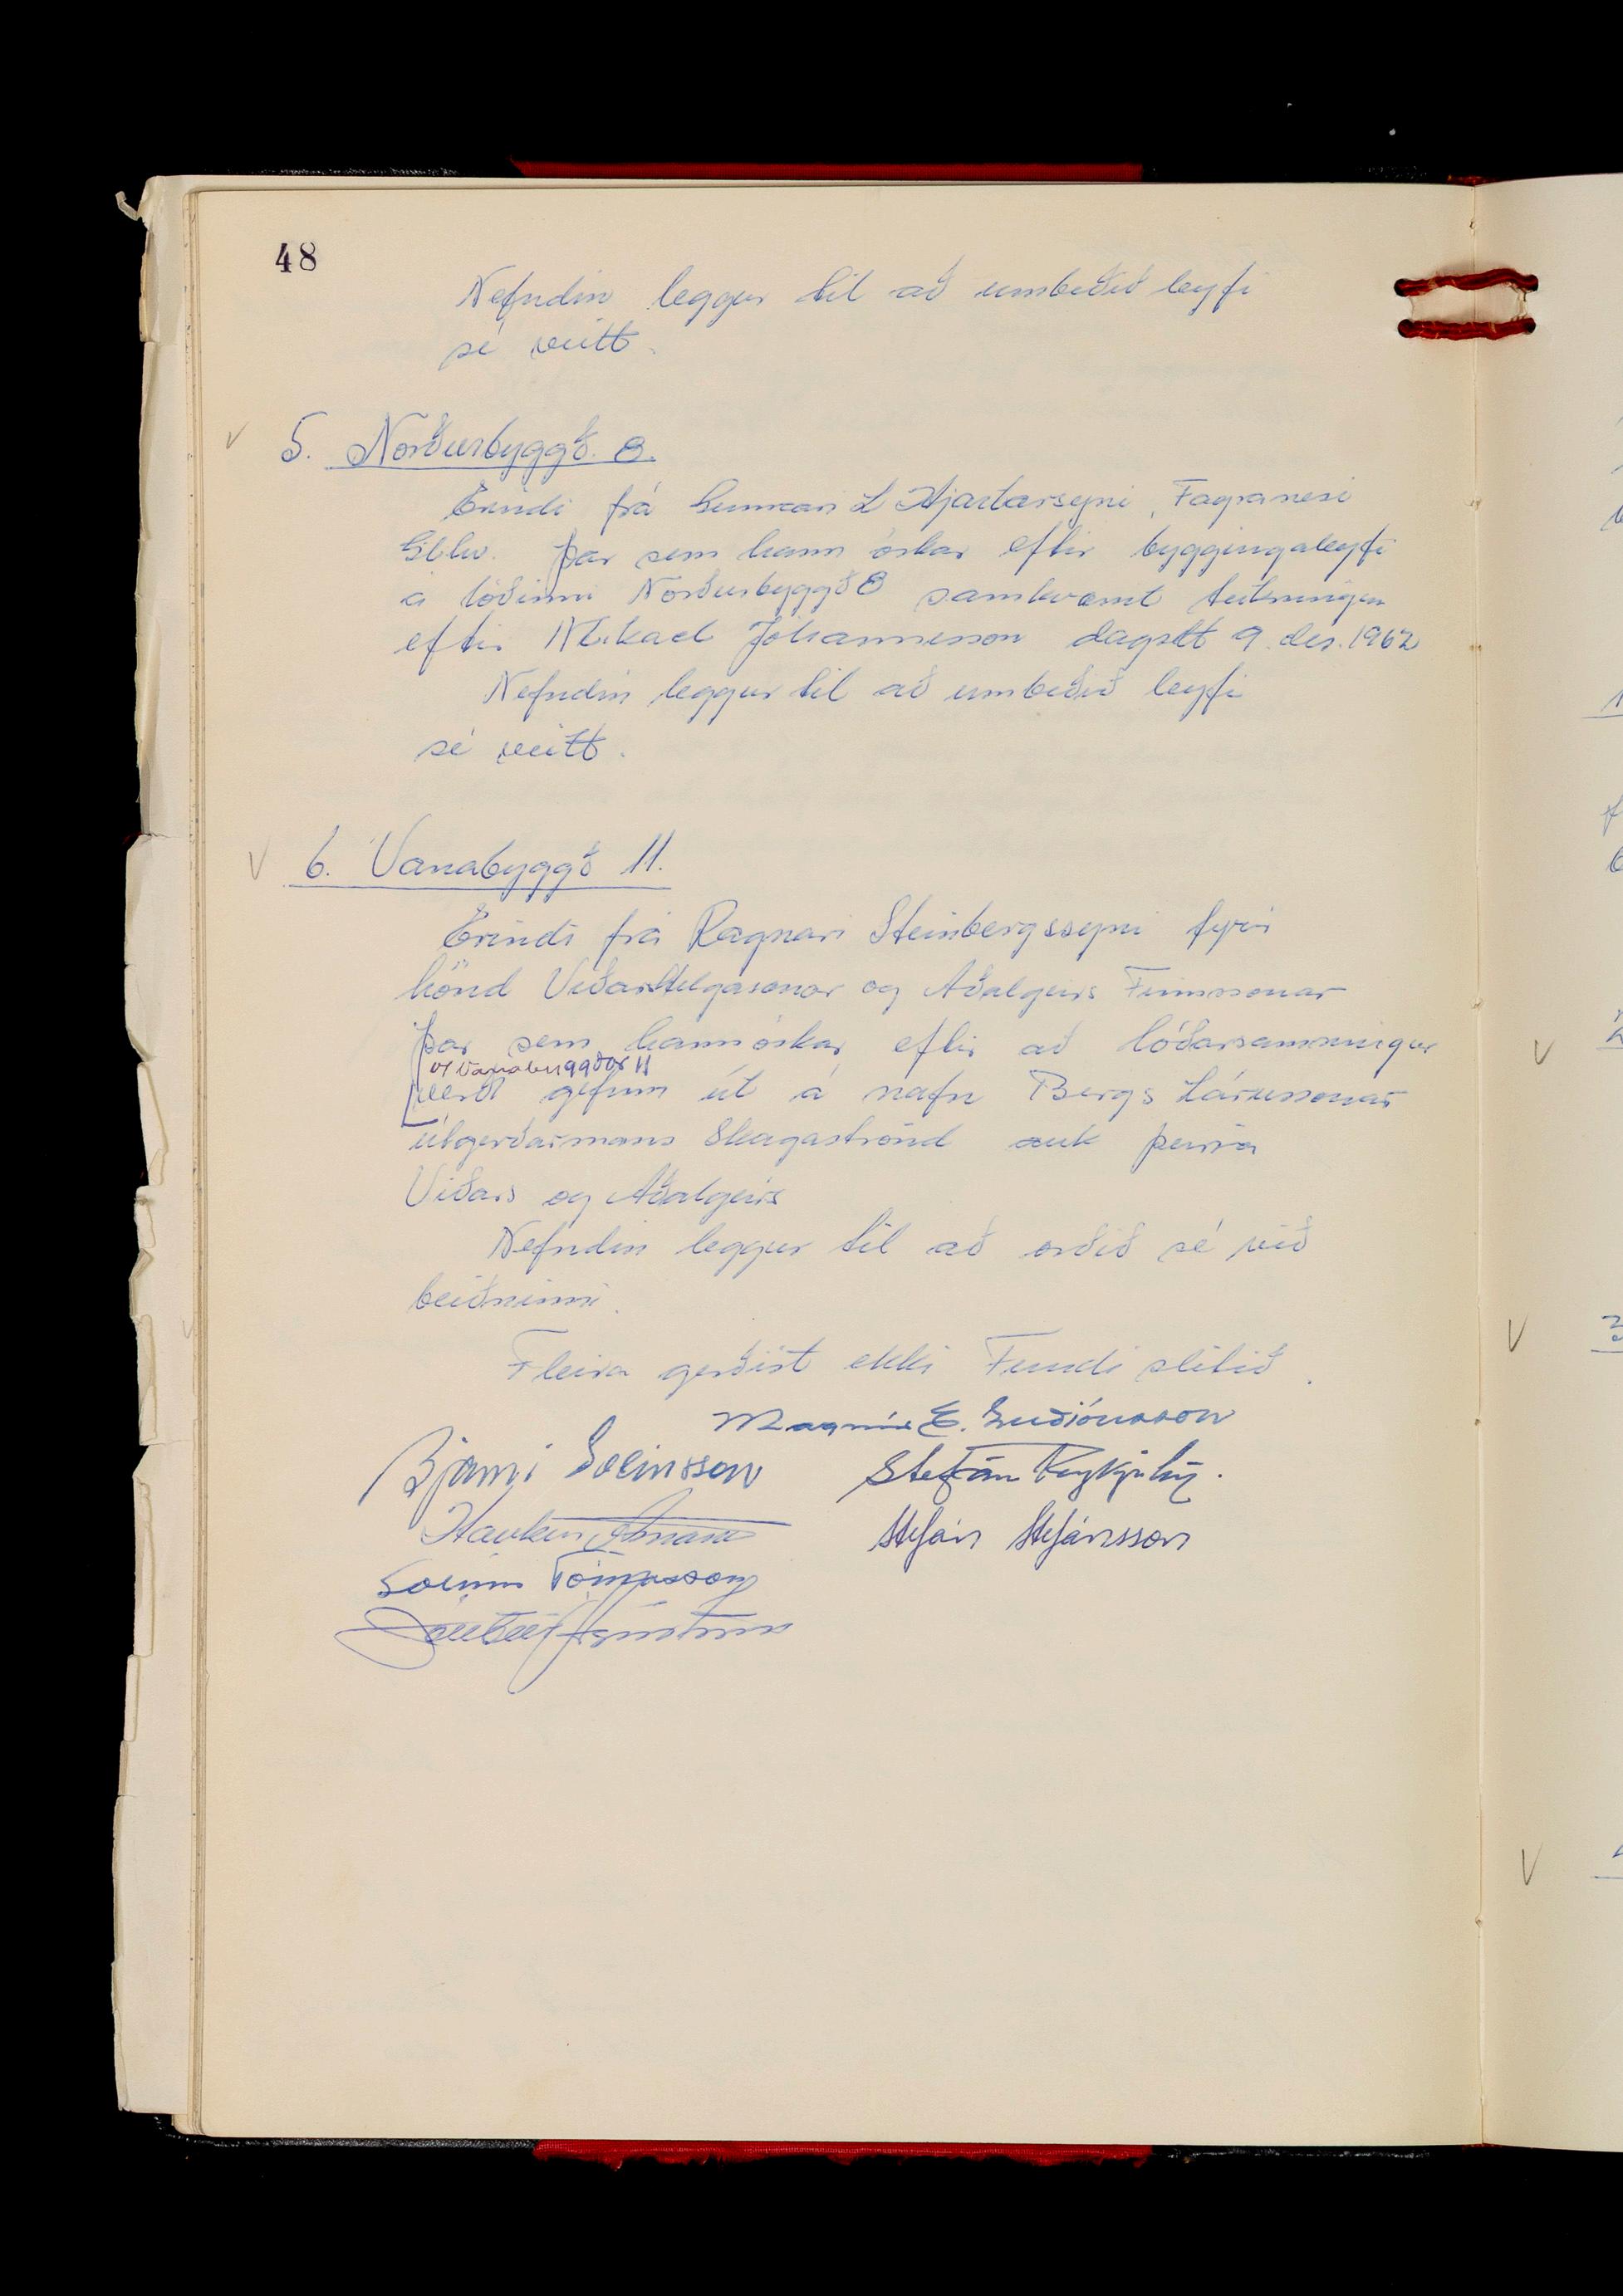 48
Nefndin leggur til að umbeðið leyfi
sé veitt.
5. Norðurbyggð. 8.
Erindi frá Gunnari L Hjartarsyni, Fagranesi
Glbw. þar sem hann óskar eftir byggingaleyfi
á lóðinni Norðurbyggð 8 samkvæmt teikningu
eftir Mikael Jóhannesson dagsett 9. des. 1962
Nefndin leggur til að umbeðið leyfi
sé veitt.
6. Vanabyggð 11.
Erindi frá Ragnari Steinbergssyni fyrir
hönd Viðars Helgasonar og Aðalgeirs Finnssonar
þar sem hann óskar eftir að lóðarsamningur
v/ Vanabyggðar 11
verði gefinn út á nafn Bergs Lárussonar
útgerðarmans Skagaströnd auk þeirra
Viðars og Aðalgeirs
Nefndin leggur til að orðið sé við
beiðninni.
Fleira gerðist ekki Fundi slitið.
Magnús E. Guðjónsson
Bjarni Sveinsson Stefán Reykjalín.
Haukur Árnason Stefán Stefánsson
Sveinn Tómasson